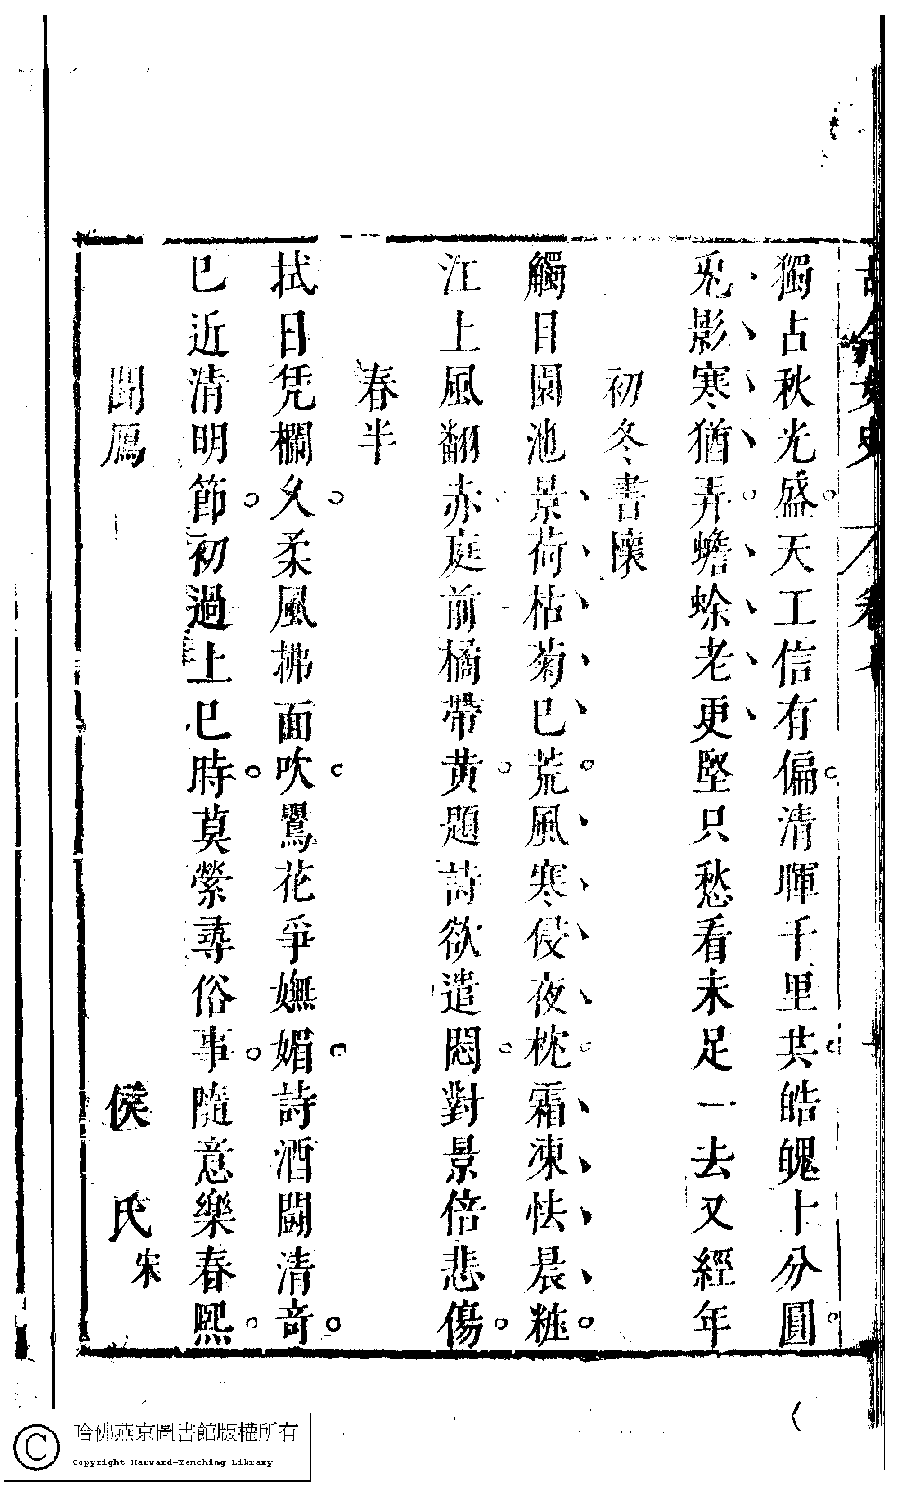 獨占秋光盛天工信有偏清暉千里共皓魄十分圓
兎影寒猶弄蟾蜍老更堅只愁看未足一去又經年
初冬書懷
觸目園池景荷枯菊已荒風寒侵夜枕霜凍怯晨粧
江上風翻赤庭前橘帶黃題詩欲遣悶對景倍悲傷
春半
拭目凭欄久柔風拂面吹鸎花爭嫵媚詩酒鬪清奇
已近清明節初過上巳時莫縈尋俗事隨意樂春熙
聞鴈
侯氏宋
哈佛燕京圖書館版權所有
Copyright Harvard-Yenching Library